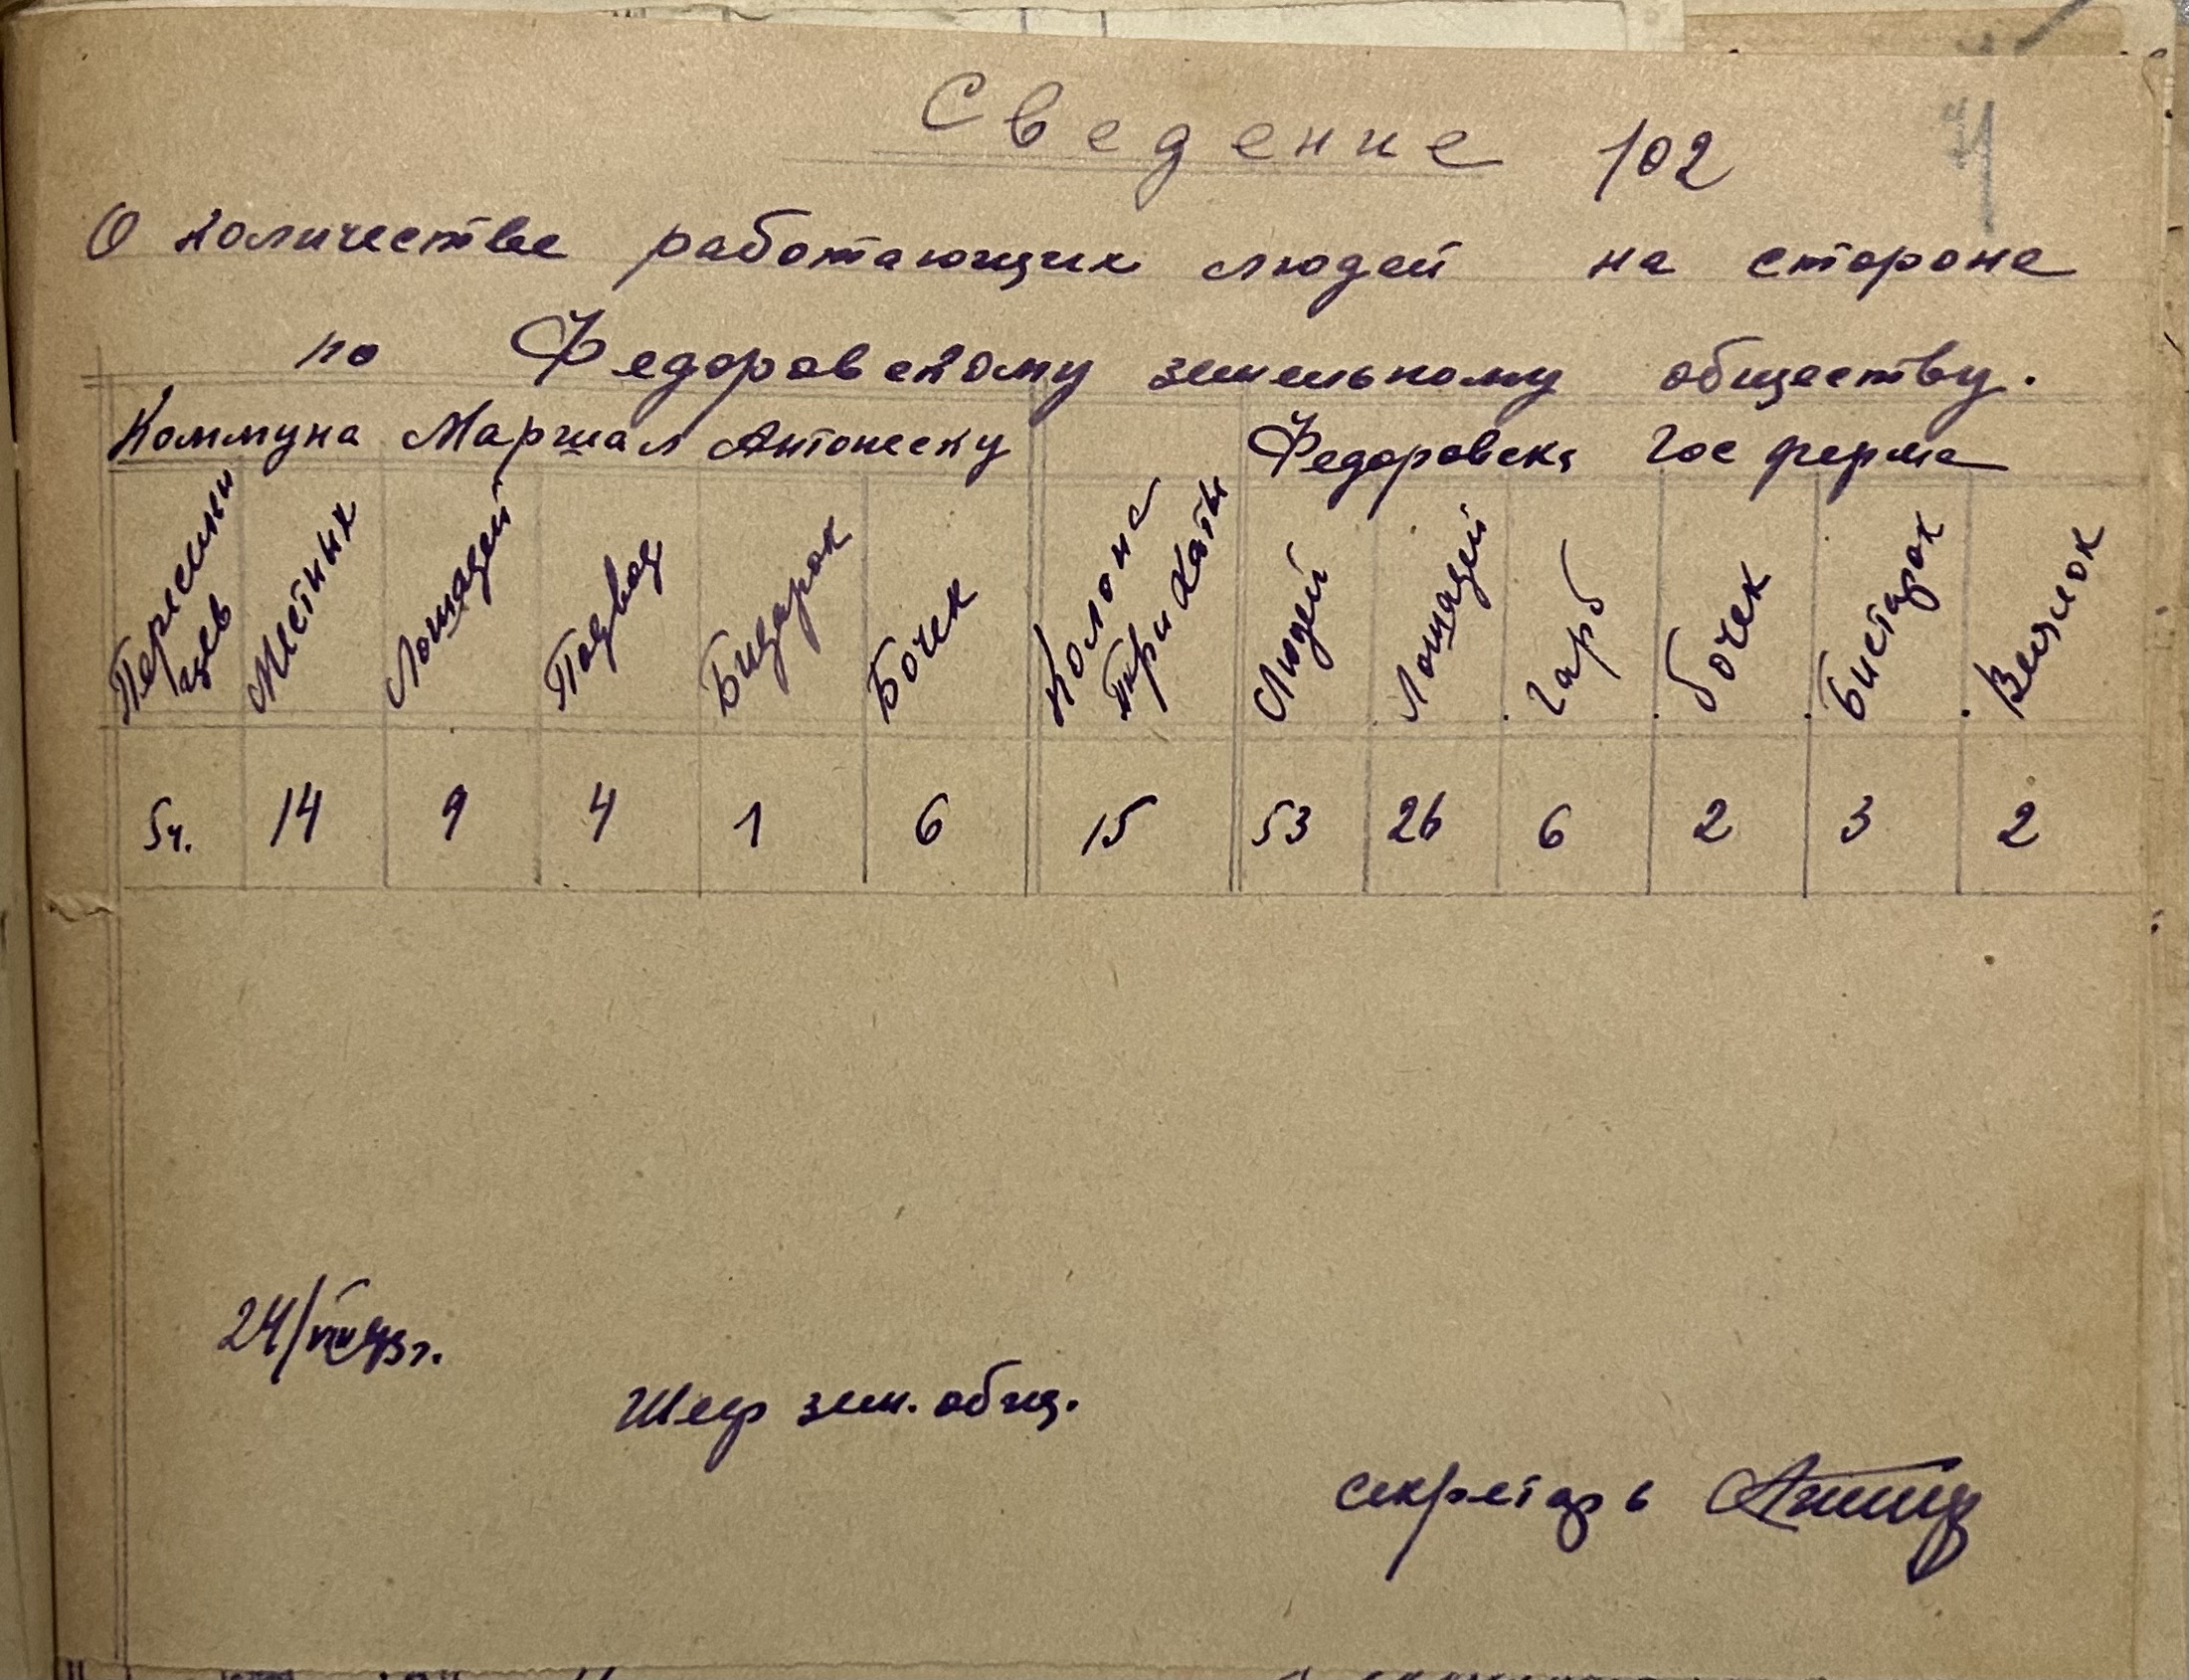 Сведение 102 71
О количестве работающих людей на стороне
по Федоровскому земельному обществу.
Коммуна Маршал Антонеску Федоровска Гос ферма
Переселенцев Местных Лошадей Подвод Бидарок Бочек Колона три хаты Людей Лошадей Гарб бочек Бистарок Веялок
5ч. 14 9 4 1 6 15 53 26 6 2 3 2
24/VIII 43 г.
Шеф зем. общ.
секретарь